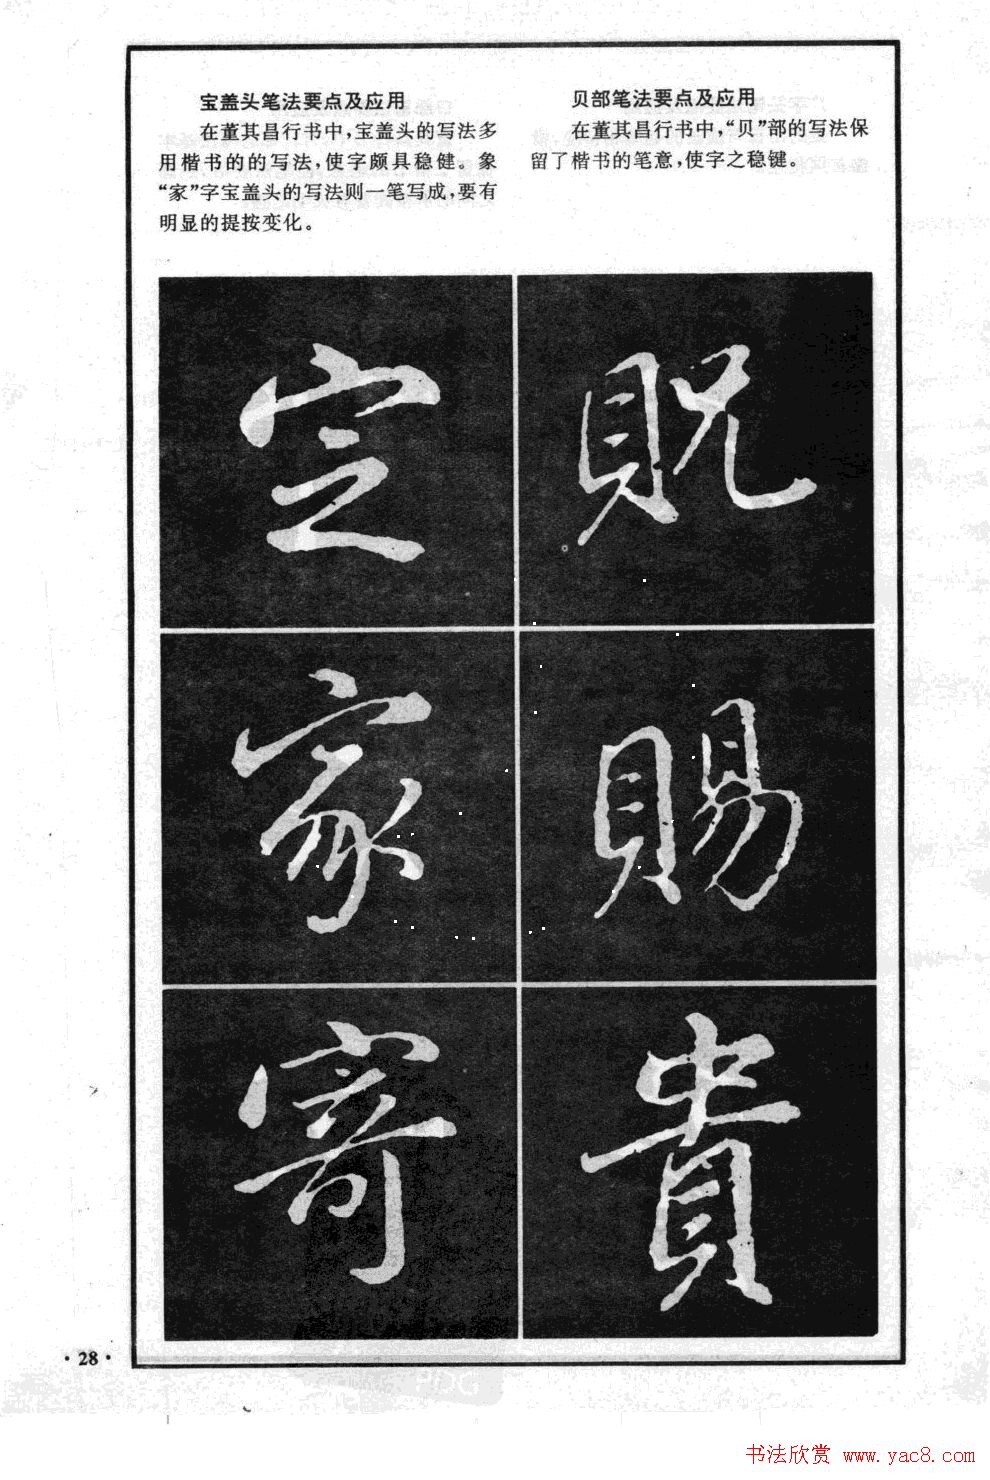 宝盖头笔法要点及应用
在董其昌行书中，宝盖头的写法多
用楷书的的写法，使字颇具稳健。象
“家”字宝盖头的写法则一笔写成，要有
明显的提按变化。
贝部笔法要点及应用
在董其昌行书中，“贝”部的写法保
留了楷书的笔意，使字之稳键。
定
貺
家
賜
寄
貴
·28·
PDG
书法欣赏 www.yac8.com